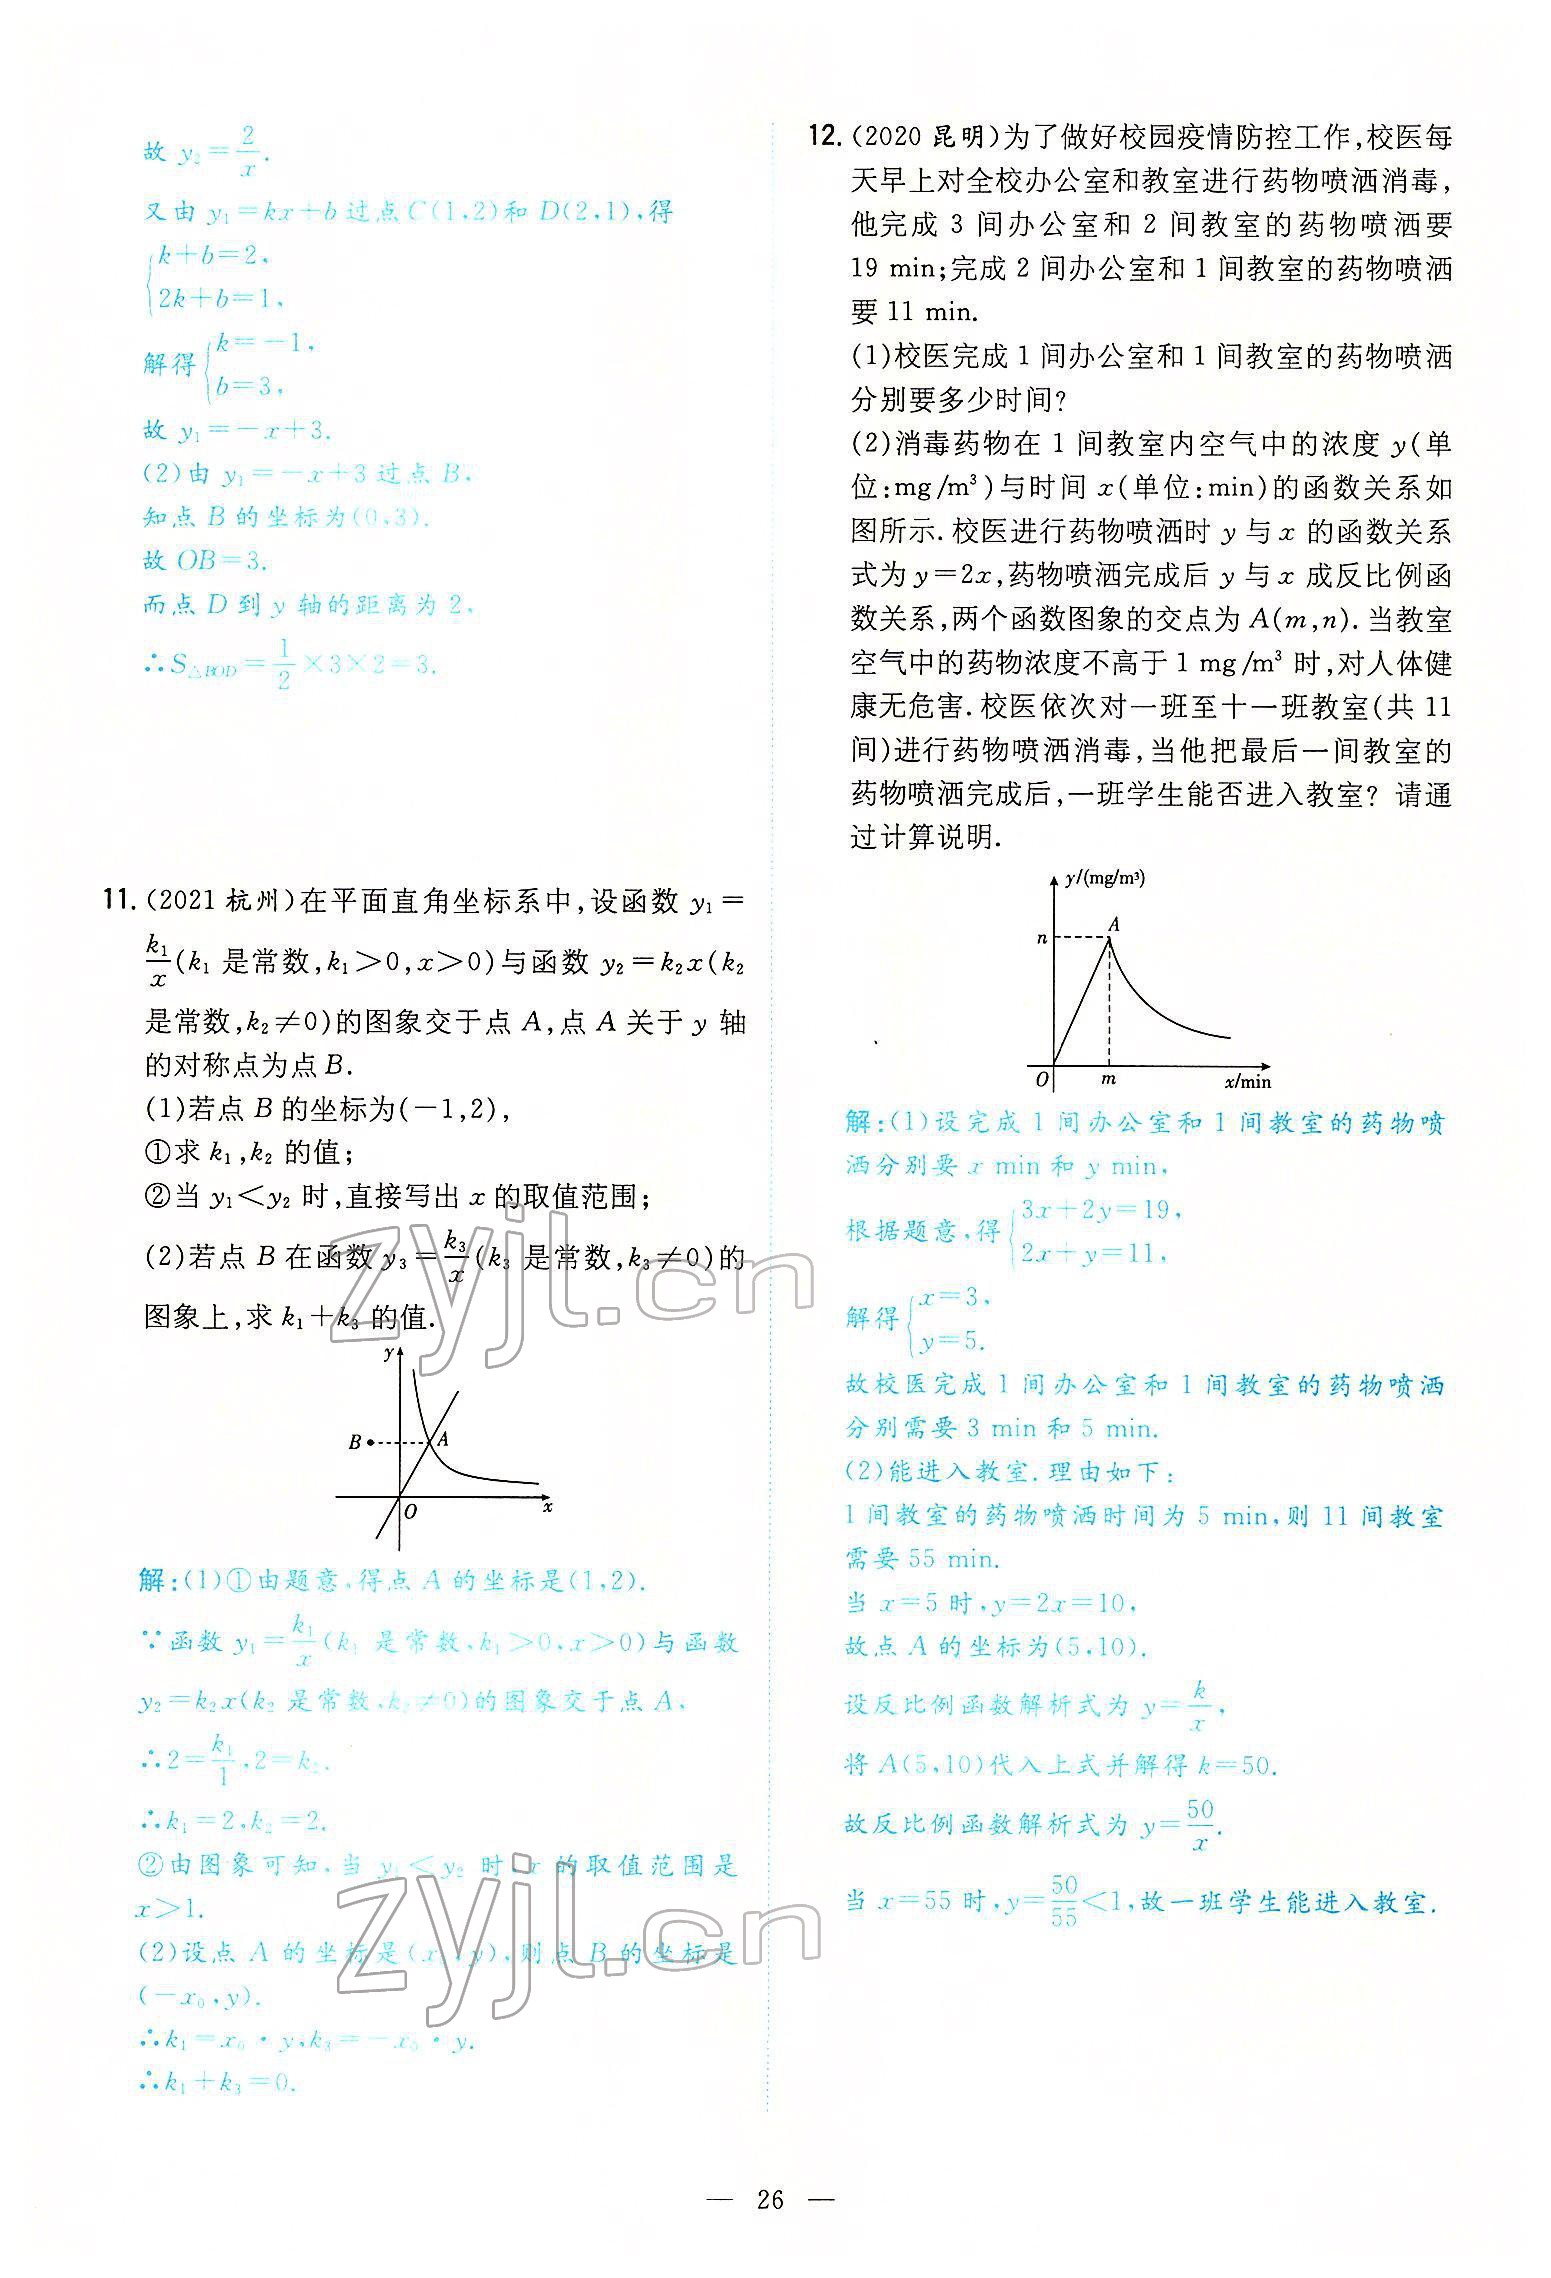 故 y₂=2/x.
又由 y₁=kx+b 过点 C(1,2)和 D(2,1),得
{k+b=2,
2k+b=1,
解得{k=-1,
b=3,
故 y₁=-x+3.
(2)由 y₁=-x+3 过点 B,
知点 B 的坐标为(0,3).
故 OB=3.
而点 D 到 y 轴的距离为 2,
∴S△BOD=1/2×3×2=3.
11. (2021 杭州)在平面直角坐标系中,设函数 y₁=
k₁/x(k₁ 是常数,k₁>0,x>0)与函数 y₂=k₂x(k₂
是常数,k₂≠0)的图象交于点 A,点 A 关于 y 轴
的对称点为点 B.
(1)若点 B 的坐标为(-1,2),
①求 k₁,k₂ 的值;
②当 y₁<y₂ 时,直接写出 x 的取值范围;
(2)若点 B 在函数 y₃=k₃/x(k₃ 是常数,k₃≠0)的
图象上,求 k₁+k₃ 的值.
y
B
A
O
x
解:(1)①由题意,得点 A 的坐标是(1,2).
∵函数 y₁=k₁/x(k₁ 是常数,k₁>0,x>0)与函数
y₂=k₂x(k₂ 是常数,k₂≠0)的图象交于点 A,
∴2=k₁/1,2=k₂.
∴k₁=2,k₂=2.
②由图象可知,当 y₁<y₂ 时,x 的取值范围是
x>1.
(2)设点 A 的坐标是(x₀,y),则点 B 的坐标是
(-x₀,y).
∴k₁=x₀·y,k₃=-x₀·y.
∴k₁+k₃=0.
12. (2020 昆明)为了做好校园疫情防控工作,校医每
天早上对全校办公室和教室进行药物喷洒消毒,
他完成 3 间办公室和 2 间教室的药物喷洒要
19 min;完成 2 间办公室和 1 间教室的药物喷洒
要 11 min.
(1)校医完成 1 间办公室和 1 间教室的药物喷洒
分别要多少时间?
(2)消毒药物在 1 间教室内空气中的浓度 y(单
位:mg/m³)与时间 x(单位:min)的函数关系如
图所示.校医进行药物喷洒时 y 与 x 的函数关系
式为 y=2x,药物喷洒完成后 y 与 x 成反比例函
数关系,两个函数图象的交点为 A(m,n).当教室
空气中的药物浓度不高于 1 mg/m³ 时,对人体健
康无危害.校医依次对一班至十一班教室(共 11
间)进行药物喷洒消毒,当他把最后一间教室的
药物喷洒完成后,一班学生能否进入教室? 请通
过计算说明.
y/(mg/m³)
A
n
O
m
x/min
解:(1)设完成 1 间办公室和 1 间教室的药物喷
洒分别要 x min 和 y min,
根据题意,得{3x+2y=19,
2x+y=11,
解得{x=3,
y=5.
故校医完成 1 间办公室和 1 间教室的药物喷洒
分别需要 3 min 和 5 min.
(2)能进入教室.理由如下:
1 间教室的药物喷洒时间为 5 min,则 11 间教室
需要 55 min.
当 x=5 时,y=2x=10,
故点 A 的坐标为(5,10).
设反比例函数解析式为 y=k/x,
将 A(5,10)代入上式并解得 k=50.
故反比例函数解析式为 y=50/x.
当 x=55 时,y=50/55<1,故一班学生能进入教室.
zyjl.cn
zyjl.cn
— 26 —